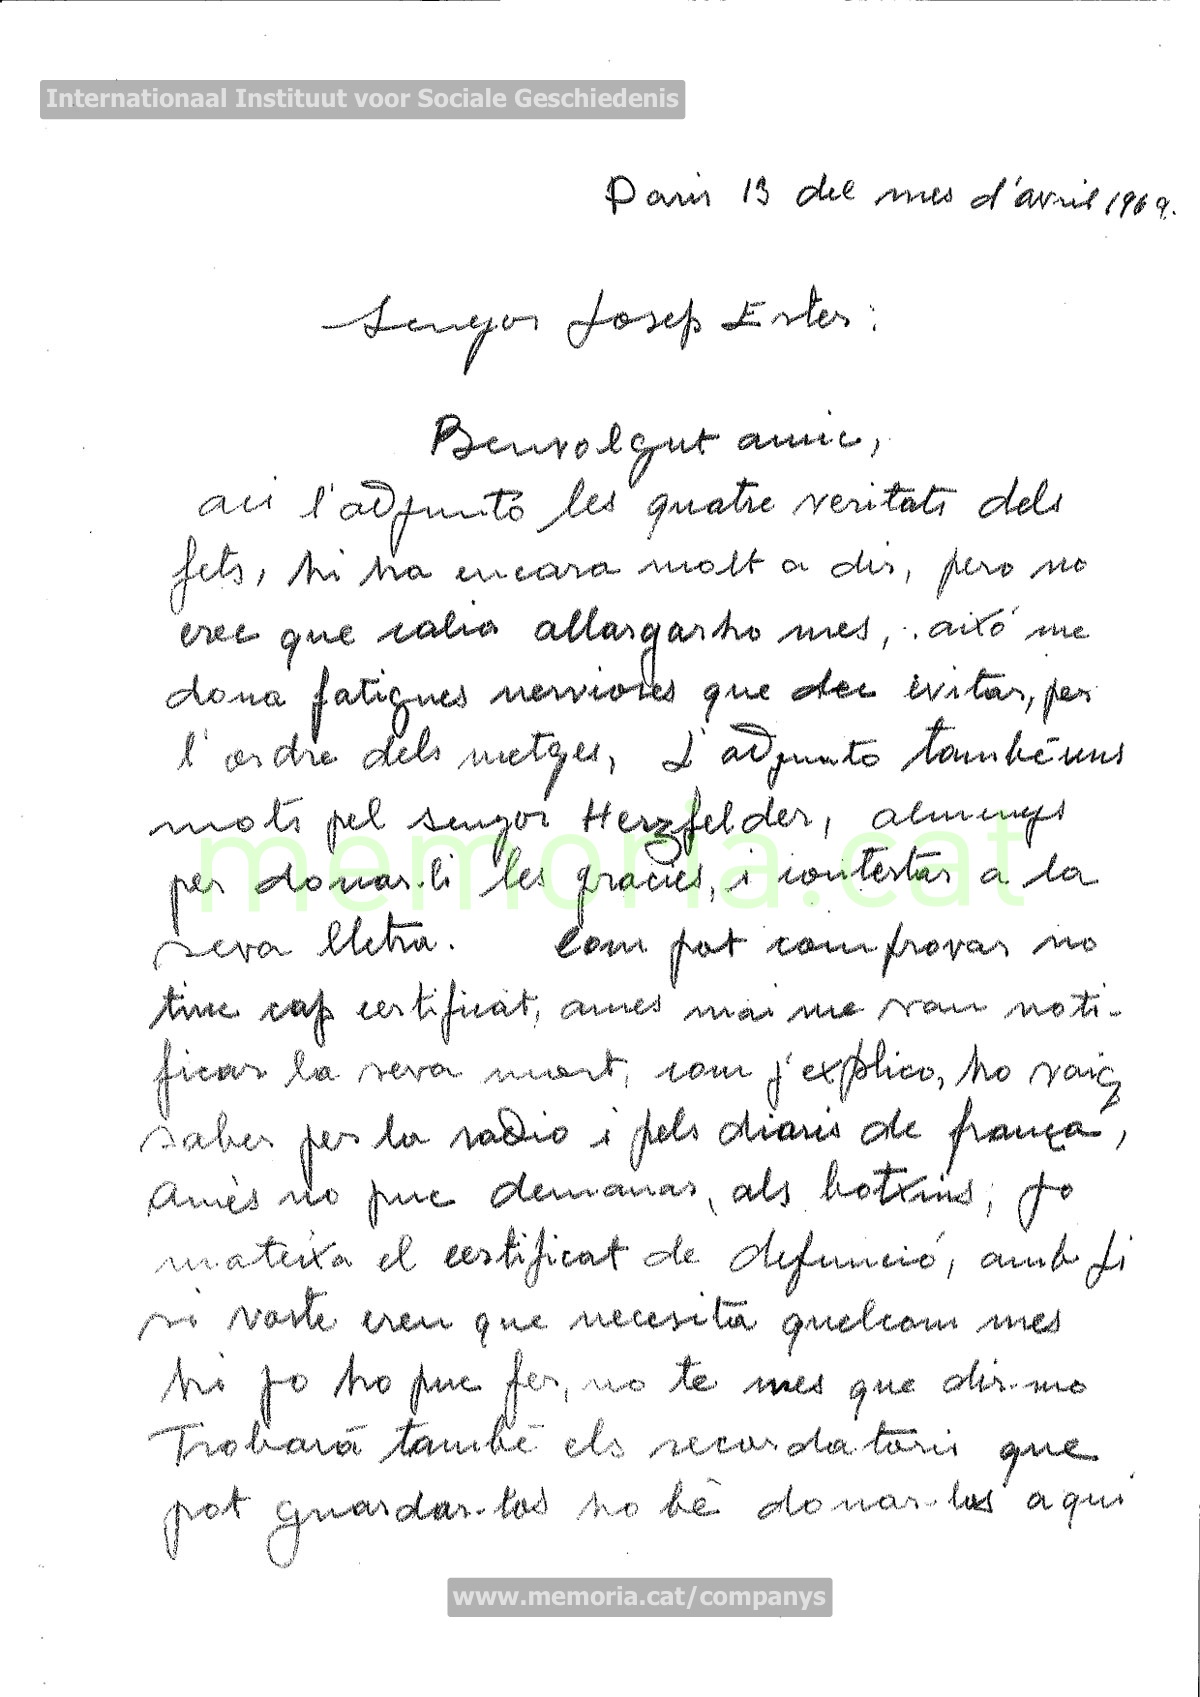 Internationaal Instituut voor Sociale Geschiedenis
Paris 13 del mes d'avril 1969.
Senyor Josep Ester:
Benvolgut amic,
aci l'adjuntó les quatre veritats dels
fets, hi ha encara molt a dir, pero no
crec que calia allargarho mes, aixó me
dona fatigues nervioses que dec èvitar, per
l'ordre dels metges, L'adjunto també uns
mots pel senyor Herzfelder, almenys
per donar-li les gracies, i contestar a la
seva lletra. Com pot comprovar no
tinc cap certificat, ames mai me van noti-
ficar la seva mort, com j'explico, ho vaig
saber per la radio i pels diaris de frança,
Amès no puc demanar, als botxins, jo
mateixa el certificat de defunció, amb fi
si voste creu que necesita quelcom mes
hi jo ho puc fer, no te mes que dir-mo
Trobarà també els recordatoris que
pot guardar-los ho bè donar-los aqui
memoria.cat
www.memoria.cat/companys